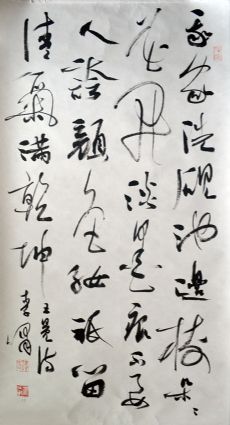 我家洗硯池邊樹朵々
花開淡墨痕不要
人誇顏色好祇留
清氣滿乾坤
王冕詩
李